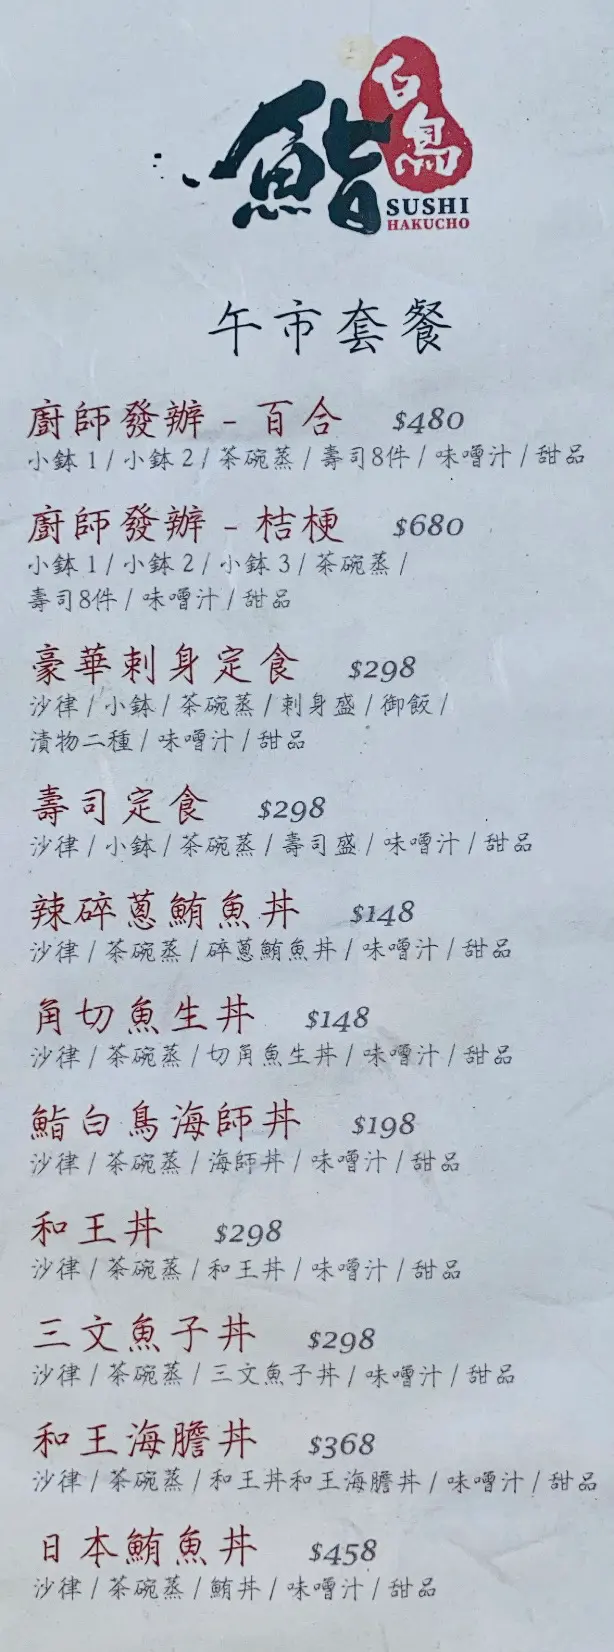 鮨
白鳥
SUSHI
HAKUCHO
午市套餐
廚師發辦 - 百合 $480
小鉢 1 / 小鉢 2 / 茶碗蒸 / 壽司8件 / 味噌汁 / 甜品
廚師發辦 - 桔梗 $680
小鉢 1 / 小鉢 2 / 小鉢 3 / 茶碗蒸 /
壽司8件 / 味噌汁 / 甜品
豪華刺身定食 $298
沙律 / 小鉢 / 茶碗蒸 / 刺身盛 / 御飯 /
漬物二種 / 味噌汁 / 甜品
壽司定食 $298
沙律 / 小鉢 / 茶碗蒸 / 壽司盛 / 味噌汁 / 甜品
辣碎蔥鮪魚丼 $148
沙律 / 茶碗蒸 / 碎蔥鮪魚丼 / 味噌汁 / 甜品
角切魚生丼 $148
沙律 / 茶碗蒸 / 切角魚生丼 / 味噌汁 / 甜品
鮨白鳥海師丼 $198
沙律 / 茶碗蒸 / 海師丼 / 味噌汁 / 甜品
和王丼 $298
沙律 / 茶碗蒸 / 和王丼 / 味噌汁 / 甜品
三文魚子丼 $298
沙律 / 茶碗蒸 / 三文魚子丼 / 味噌汁 / 甜品
和王海膽丼 $368
沙律 / 茶碗蒸 / 和王丼和王海膽丼 / 味噌汁 / 甜品
日本鮪魚丼 $458
沙律 / 茶碗蒸 / 鮪丼 / 味噌汁 / 甜品